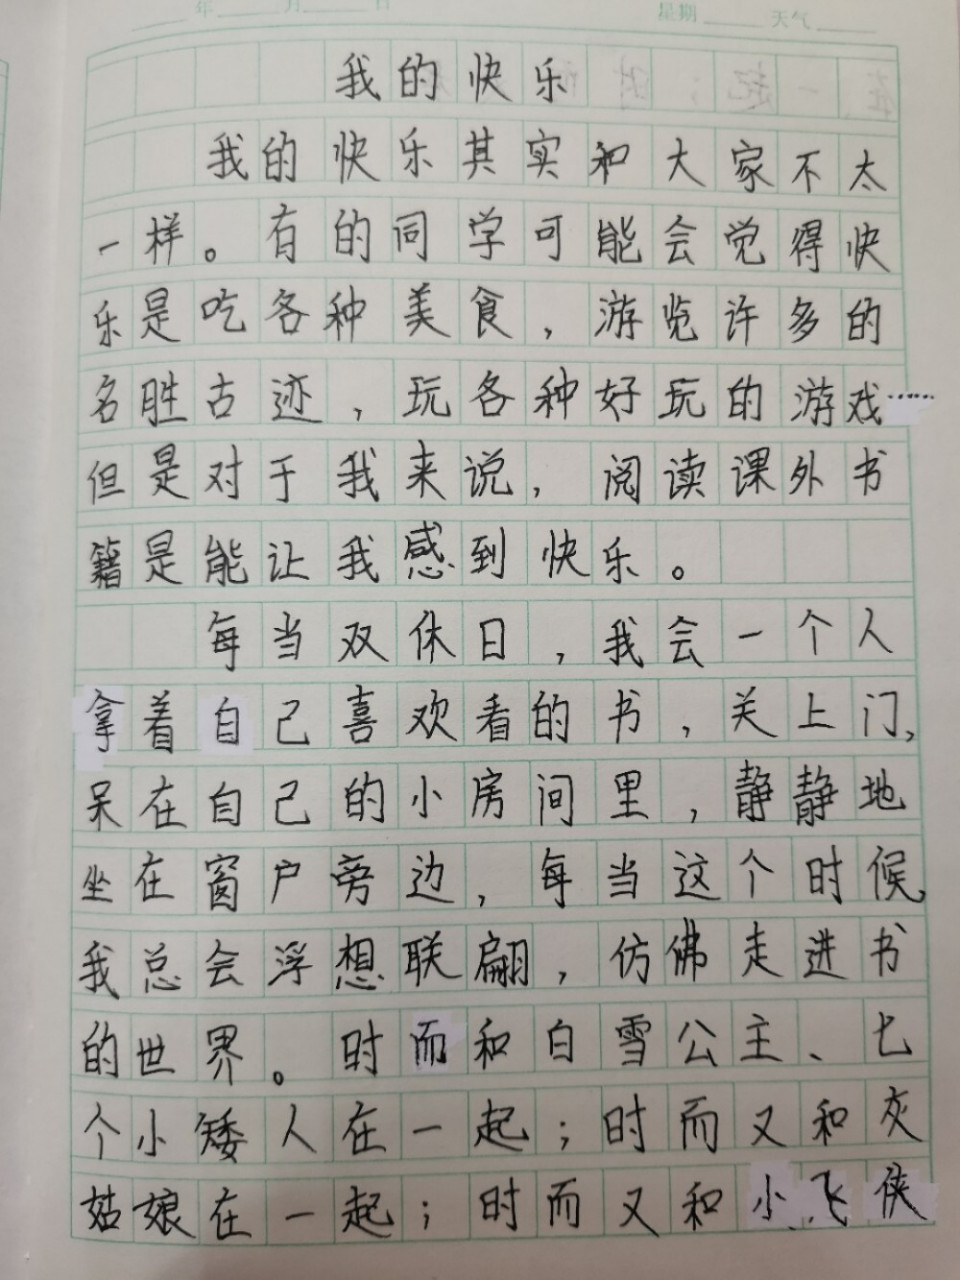 年 月 日 星期 天气
我的快乐
我的快乐其实和大家不太
一样。有的同学可能会觉得快
乐是吃各种美食，游览许多的
名胜古迹，玩各种好玩的游戏……
但是对于我来说，阅读课外书
籍是能让我感到快乐。
每当双休日，我会一个人
拿着自己喜欢看的书，关上门，
呆在自己的小房间里，静静地
坐在窗户旁边，每当这个时候，
我总会浮想联翩，仿佛走进书
的世界。时而和白雪公主、七
个小矮人在一起；时而又和灰
姑娘在一起；时而又和小飞侠